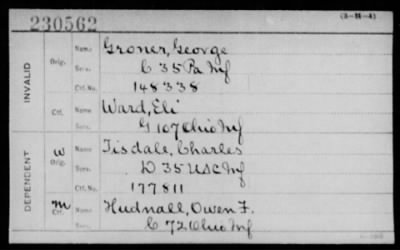 230562
(3-11-A)
INVALID
Orig. Name Groner, George
Serv. C 35 Pa Inf
Ctf. No. 148338
Ctf. Name Ward, Eli
Serv. G 107 Ohio Inf
DEPENDENT
W Orig. Name Tisdale, Charles
Serv. D 35 USC Inf
Ctf. No. 177811
M Ctf. Name Hudnall, Owen F.
Serv. C 72 Ohio Inf